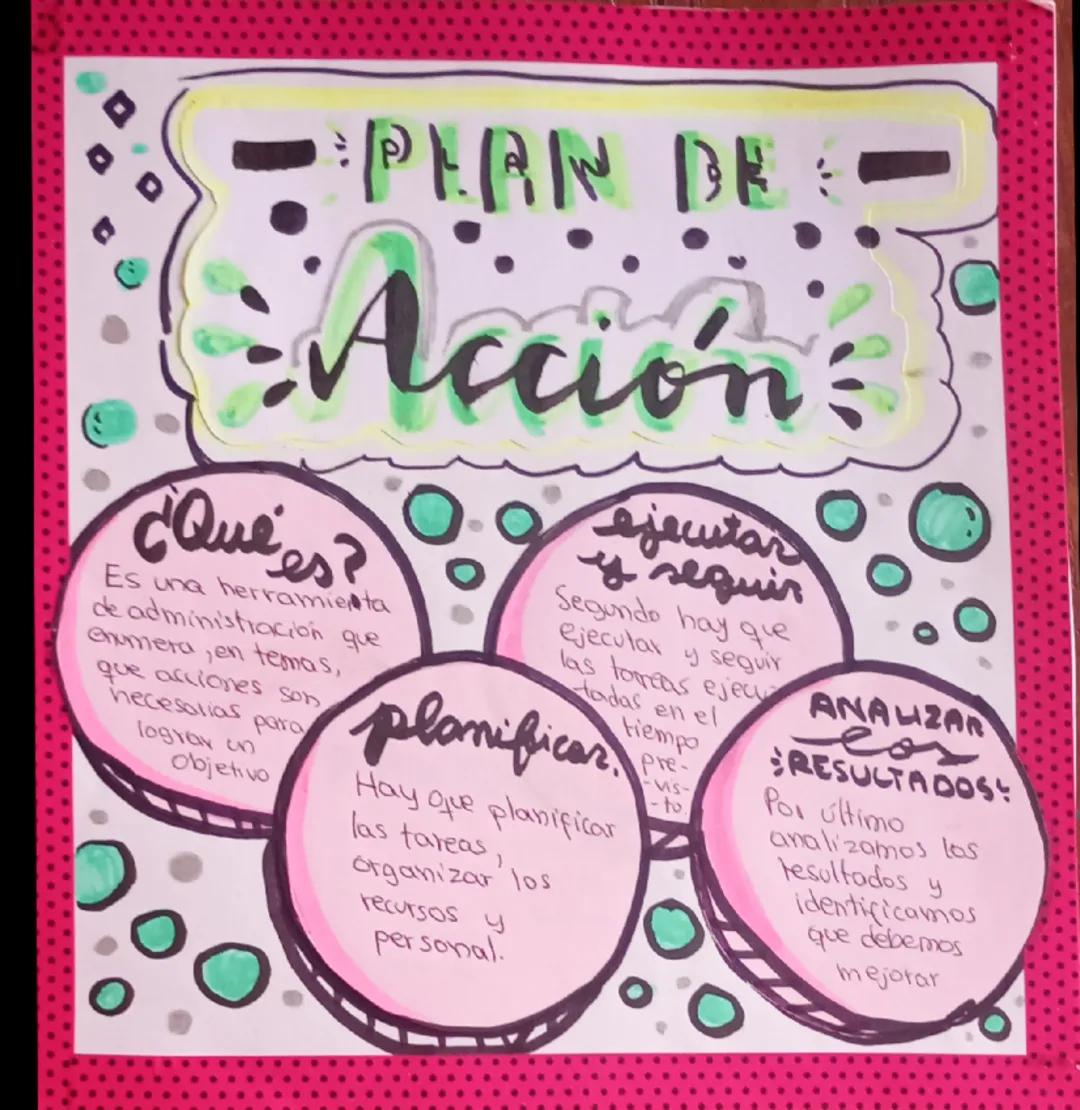 PLAN DE
Acción
¿Qué
es?
Es una herramienta
de administración que
enumera, en temas,
que acciones son
necesarias para
lograr un
objetivo
planificar.
Hay que planificar
las tareas,
organizar los
recursos y
personal.
ejecutar
y seguir
Segundo hay que
ejecutar y seguir
las tareas ejecu-
tadas en el
tiempo
pre-
-vis-
-to.
ANALIZAR
los
RESULTADOS
Por último
analizamos los
resultados y
identificamos
que debemos
mejorar